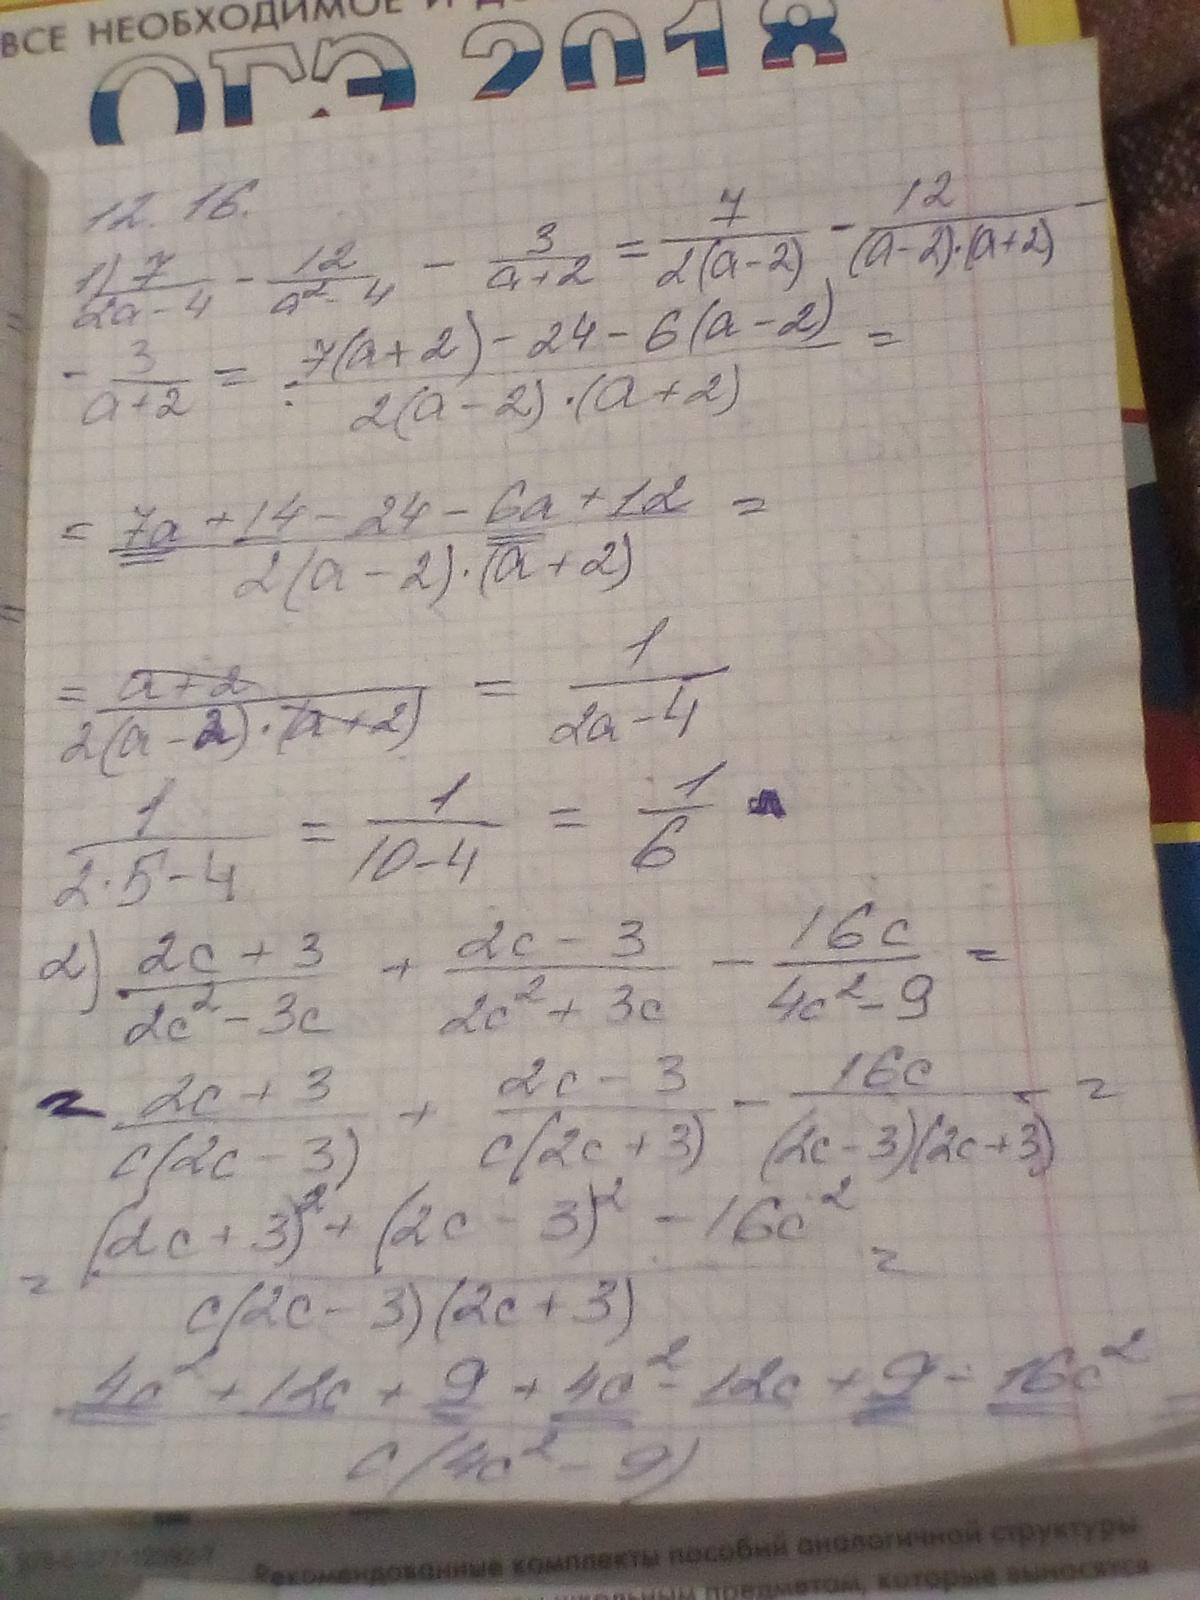 ВСЕ НЕОБХОДИМОЕ И
ОГЭ 2018
12.16.
1) 7/(2a-4) - 12/(a²-4) - 3/(a+2) = 7/(2(a-2)) - 12/((a-2)·(a+2)) -
- 3/(a+2) = (7(a+2)-24-6(a-2))/(2(a-2)·(a+2)) =
= (7a+14-24-6a+12)/(2(a-2)·(a+2)) =
= (a+2)/(2(a-2)·(a+2)) = 1/(2a-4)
1/(2·5-4) = 1/(10-4) = 1/6
2) (2c+3)/(2c²-3c) + (2c-3)/(2c²+3c) - 16c/(4c²-9) =
= (2c+3)/(c(2c-3)) + (2c-3)/(c(2c+3)) - 16c/((2c-3)(2c+3)) =
= ((2c+3)²+(2c-3)²-16c²)/(c(2c-3)(2c+3)) =
= (4c²+12c+9+4c²-12c+9-16c²)/(c(4c²-9)) =
Рекомендованные комплекты пособий аналогичной структуры
школьным предметом, которые выносятся